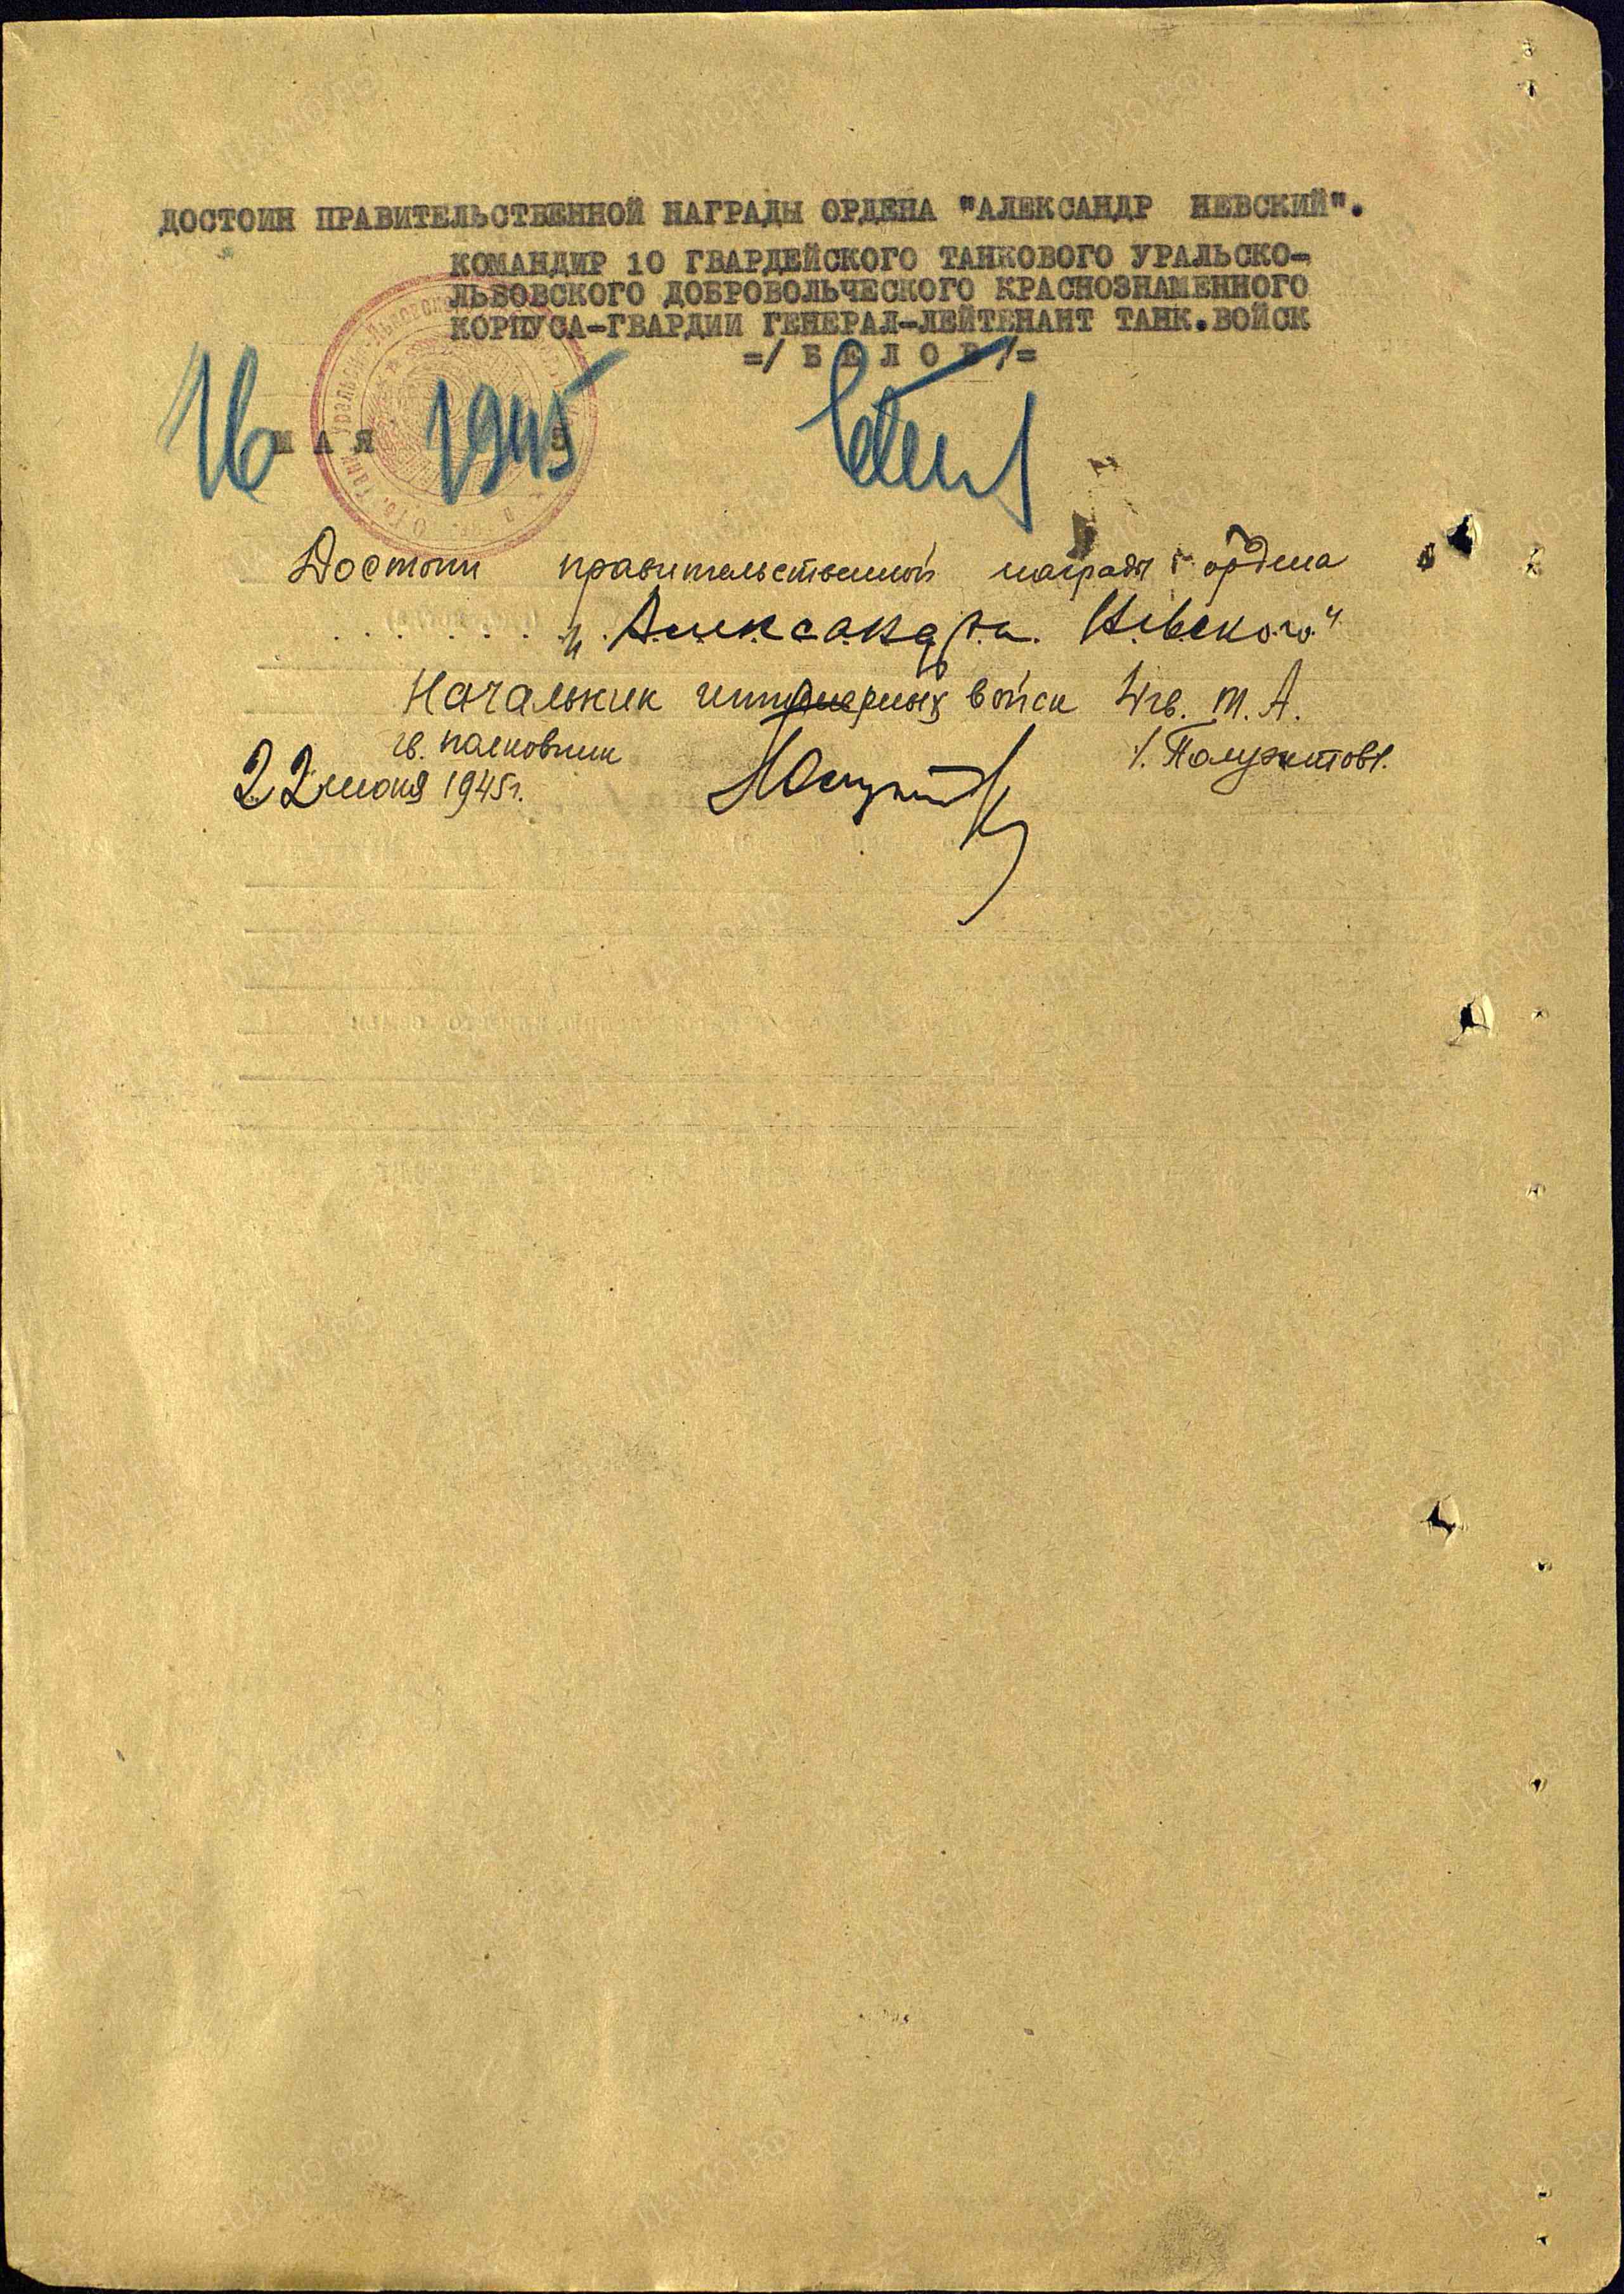 ДОСТОИН ПРАВИТЕЛЬСТВЕННОЙ НАГРАДЫ ОРДЕНА "АЛЕКСАНДР НЕВСКИЙ".
КОМАНДИР 10 ГВАРДЕЙСКОГО ТАНКОВОГО УРАЛЬСКО-
ЛЬВОВСКОГО ДОБРОВОЛЬЧЕСКОГО КРАСНОЗНАМЕННОГО
КОРПУСА-ГВАРДИИ ГЕНЕРАЛ-ЛЕЙТЕНАНТ ТАНК.ВОЙСК
=/ Б Е Л О В /=
16 МАЯ 1945
Достоин правительственной награды ордена
"Александра Невского"
Начальник инженерных войск 4 гв. Т. А.
гв. полковник /. Полуэктов/.
22 июня 1945г.
ЦАМО.РФ